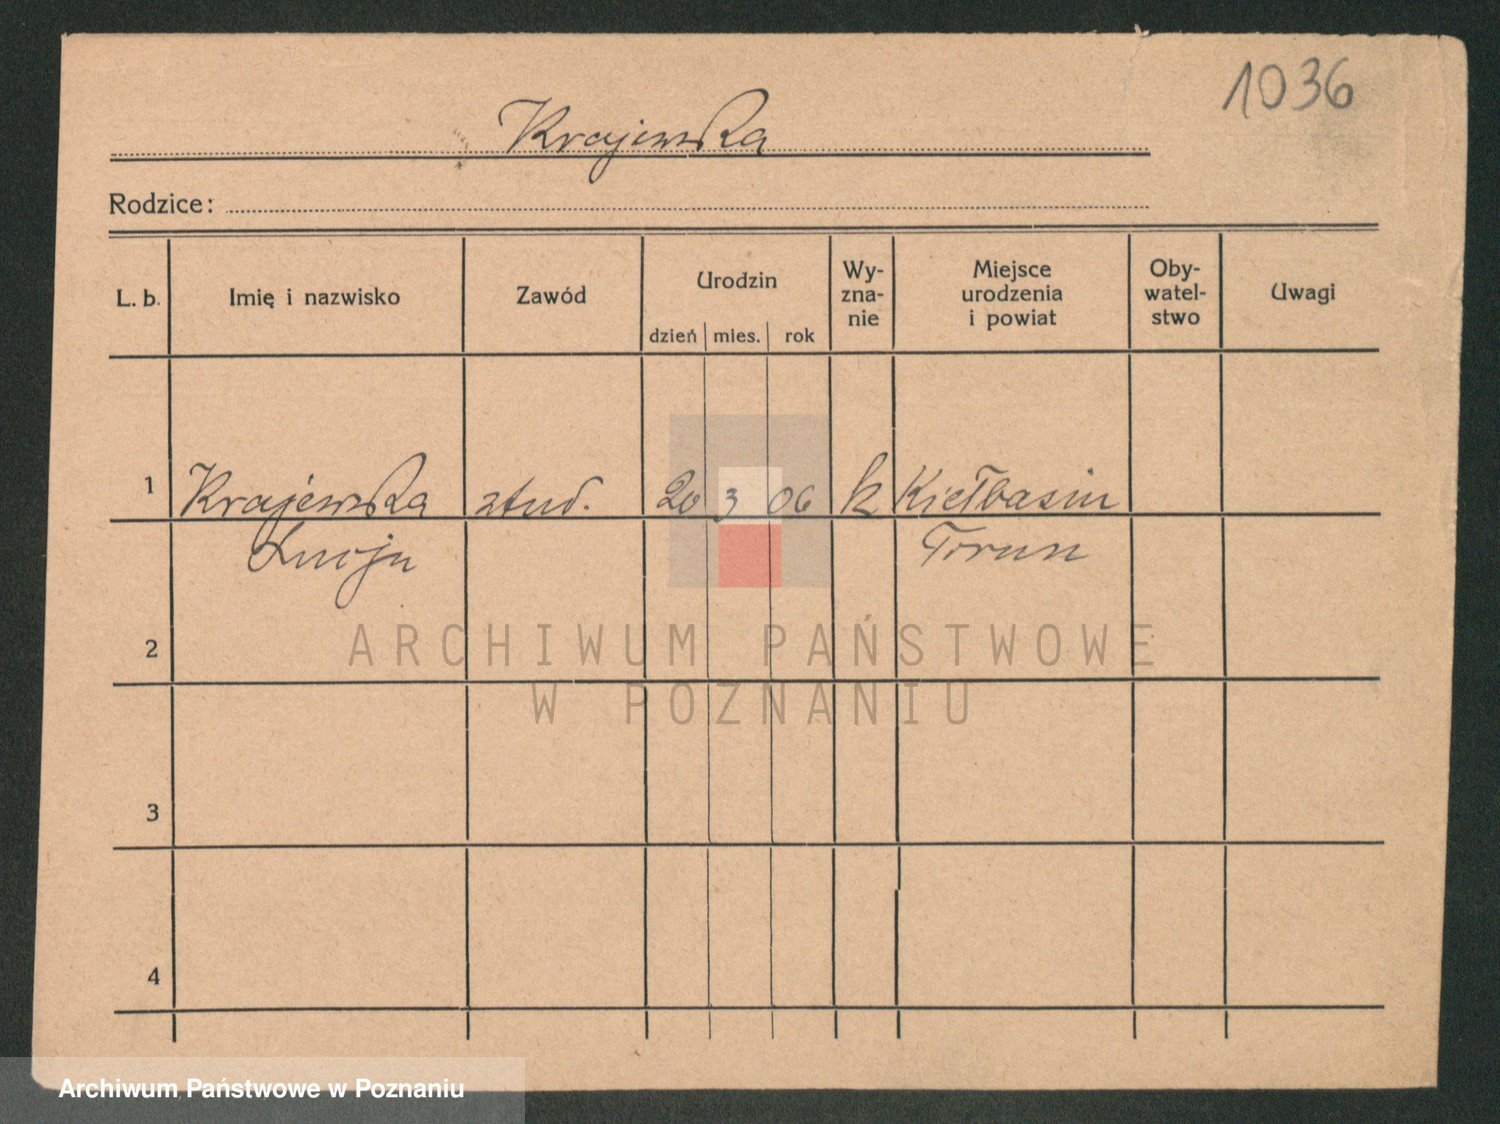 1036
Krajewska
Rodzice:
L. b. Imię i nazwisko Zawód Urodzin dzień mies. rok Wy-zna-nie Miejsce urodzenia i powiat Oby-watel-stwo Uwagi
1 Krajewska stud. 20 3 06 k Kiełbasin
Lucja Torun
2
ARCHIWUM PAŃSTWOWE
W POZNANIU
3
4
Archiwum Państwowe w Poznaniu